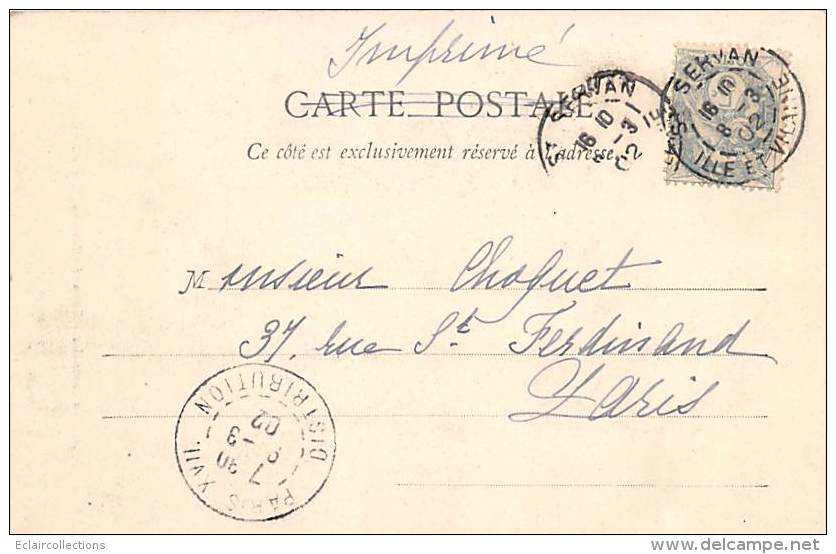 Imprimé
CARTE POSTALE
Ce côté est exclusivement réservé à l'adresse
ST SERVAN
16 10
8 -3
02
ST SERVAN
16 10
8 3
02
ILLE ET VILAINE
Monsieur Choquet
37, rue St. Ferdinand
Paris
PARIS XVII
DISTRIBUTION
7
9 -3
02
Eclaircollections
www.delcampe.net